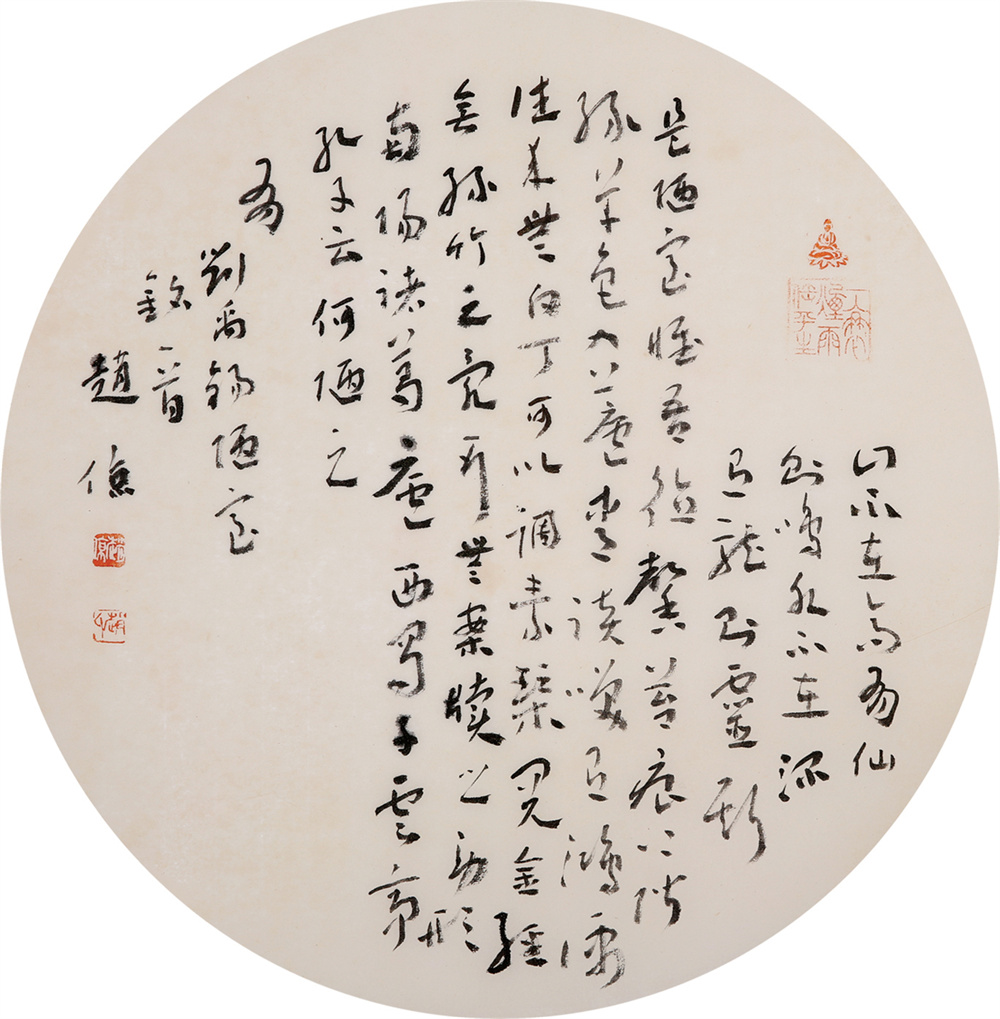 山不在高有仙
則鳴水不在深
有龍則靈斯
是陋室惟吾德馨苔痕上階
緑草色入簾青談笑有鴻儒
往来無白丁可以調素琴閲金經
無絲竹之亂耳無案牘之勞形
南陽諸葛廬西蜀子雲亭
孔子云何陋之
有
劉禹錫陋室
銘一首
趙